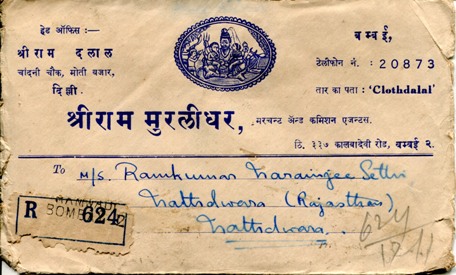 हेड ऑफिस :—
श्री राम दलाल
चांदनी चौक, मोती बजार,
दिल्ली
बम्बई,
टेलीफोन नं. : 20873
तार का पता : 'Clothdalal'
श्रीराम मुरलीधर,
मरचन्ट ॲन्ड कमिशन एजन्टस.
ठि. ३३७ कालबादेवी रोड, बम्बई २.
To M/s. Ramkumar Narainjee Sethi
Nathdwara (Rajasthan)
Nathdwara.
R
BOMBAY
624
624